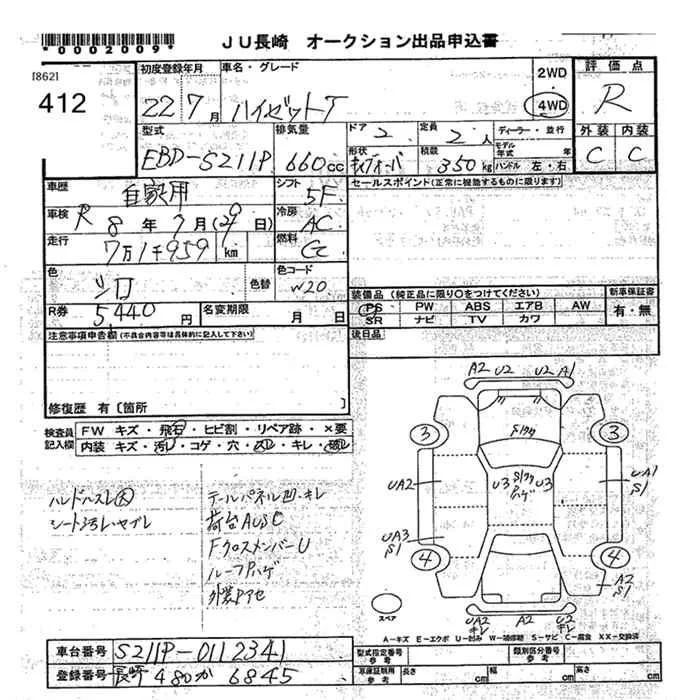 *0002009*
JU長崎 オークション出品申込書
[862]
412
初度登録年月
22 7月
車名・グレード
ハイゼットT
2WD
4WD
評価点
R
型式
EBD-S211P
排気量
660cc
ドア
2
定員
2人
ディーラー・並行
モデル年式 年
形状
積載
350kg
ハンドル 左・右
外装 内装
C C
車歴
自家用
シフト
5F
セールスポイント(正常に機能するものに限ります)
車検
R 8年7月(29日)
冷房
AC
走行
7万1千959km
燃料
色
シロ
色替
色コード
W20
装備品(純正品に限り○をつけてください)
新車保証書
PS PW ABS エアB AW
有・無
SR ナビ TV カワ
R券
5,440円
名変期限
月 日
後日品
注意事項申告欄(不具合内容等は具体的に記入して下さい)
修復歴 有〔箇所 〕
検査員記入欄
FW キズ・飛石・ヒビ割・リペア跡・×要
内装 キズ・汚レ・コゲ・穴・スレ・キレ・破レ
ハンドルスレ大
シート汚レ・ヤブレ
テールパネル凹・キレ
荷台AUSC
FクロスメンバーU
ルーフPハゲ
外装Pアセ
A2 U2 U2 A1
3 3
UA2 U3 U3 UA1 S1
UA3 S1
4 4
A2 S1
UA2 キレ A2 U2 キレ
スペア
A-キズ E-エクボ U-凹み W-補修跡 S-サビ C-腐食 XX-交換済
車台番号
S211P-0112341
登録番号
長崎480か6845
型式指定番号 参考
類別区分番号 参考
車庫証明用 参考
長さ cm
幅 cm
高さ cm